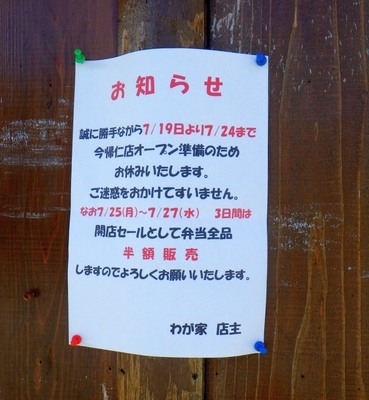 お知らせ
誠に勝手ながら7/19日より7/24まで
今帰仁店オープン準備のため
お休みいたします。
ご迷惑をおかけてすいません。
なお7/25(月)~7/27(水) 3日間は
開店セールとして弁当全品
半額販売
しますのでよろしくお願いいたします。
わが家 店主